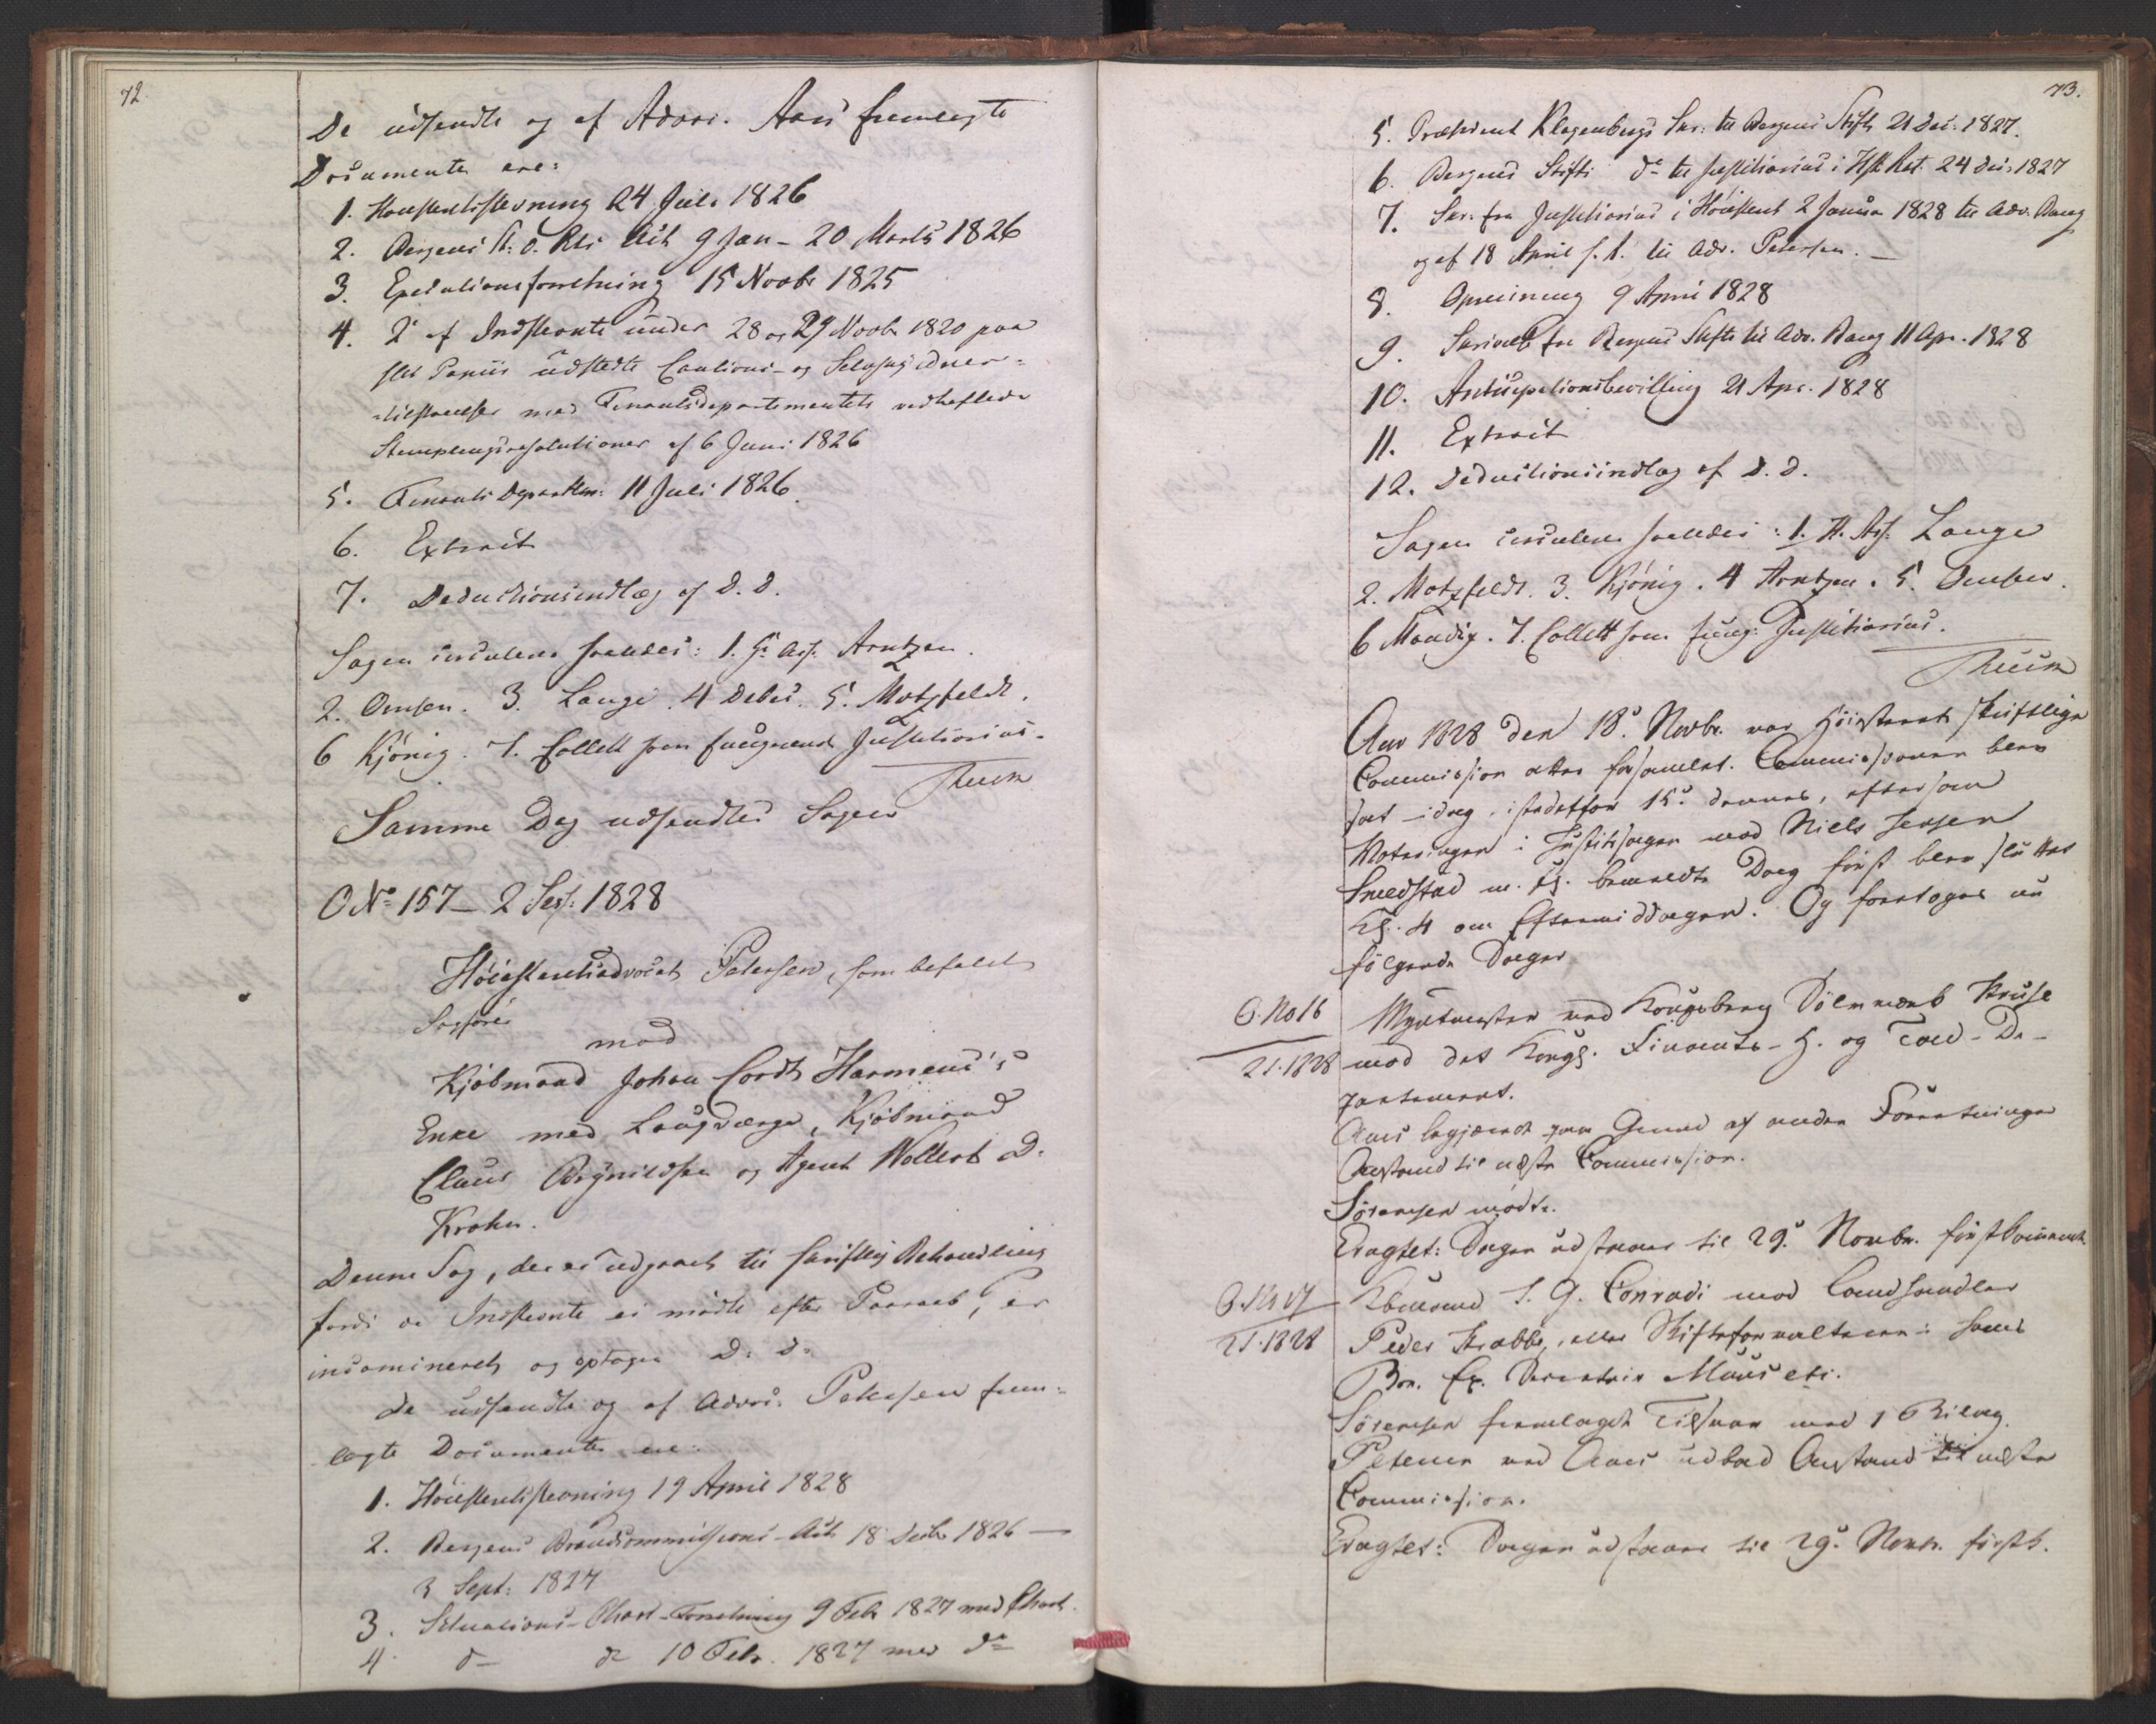 72.
De udsendte og af Advoc. Aars fremlagte
Documenter ere:
1. Høiesteretsstevning 24 Juli 1826
2. Bergens St: O. Rets Act 9 Jan - 20 Marts 1826
3. Executionsforretning 15 Novbr 1825
4. 2de af Indstevnte under 28 og 29 Novbr 1820 paa
slet Papiir udstedte Cautions- og Selvskyldner-
tilstaaelser med Finantsdepartementets vedheftede
Stemplingsresolutioner af 6 Juni 1826
5. Finants Departem: 11 Juli 1826.
6. Extract
7. Deductionsindlæg af D. D.
Sagen circulerer saaledes: 1. Hr Ass. Arntzen.
2. Omsen. 3. Lange. 4 Debes. 5. Motzfeldt.
6 Kjønig. 7. Collett som fungerende Justitiarius.
Samme Dag udsendtes Sagen
O No 157 - 2 Sess: 1828
Høiesteretsadvocat Petersen, som befalet
Sagfører
mod
Kjøbmand Johan Cordt Harmens's
Enke med Laugværge, Kjøbmand
Claus Brynildsen og Agent Wollert D.
Krohn.
Denne Sag, der er udgaaet til skriftlig Behandling
fordi de Indstevnte ei mødte efter Paaraab, er
incamineret og optagen D. D.
De udsendte og af Advoc. Petersen frem-
lagte Documenter ere:
1. Høiesteretsstevning 19 April 1828
2. Bergens Brandcommissions-Act 18 Decbr 1826 -
3 Sept: 1827
3. Situations-Chart-Forretning 9 Febr 1827 med Chart.
4 do do 10 Febr. 1827 med do
73.
5. Præsident Klagenbergs Skr. til Bergens Stift 21 Dec: 1827.
6. Bergens Stifts do til Justitiarius i HstRet. 24 Dec: 1827
7. Skr. fra Justitiarius i Høiesteret 2 Januar 1828 til Adv. Bang
og af 18 April s. A. til Adv. Petersen. -
8. Opreisning 9 April 1828
9. Skrivelse fra Bergens Stift til Adv. Bang 11 Apr. 1828
10. Anticipationsbevilling 21 Apr. 1828
11. Extract
12. Deductionsindlæg af D. D.
Sagen circulerer saaledes: 1. H. Ass. Lange
2. Motzfeldt. 3. Kjønig. 4 Arntzen. 5. Omsen.
6 Mandix. 7. Collett som fung: Justitiarius.
Aar 1828 den 18de Novbr. var Høiesterets skriftlige
Commission atter forsamlet. Commissionen blev
sat idag istedetfor 15de dennes, eftersom
Voteringen i Justitssagen mod Niels Jensen
Smedstad m. fl. bemeldte Dag først blev sluttet
Kl. 4 om Eftermiddagen. Og foretoges nu
følgende Sager
O. No 16
21.1828
Myntmester ved Kongsberg Sølvværk Kruse
mod det Kongl. Finants- H. og Told-De-
partement.
Aars begjærede paa Grund af andre Forretninger
Anstand til næste Commission.
Sørensen mødte.
Eragtet: Sagen udstaaer til 29de Novbr. førstkommende
O. No 17
21.1828
Kbmand J. G. Conradi mod Landhandler
Peder Krabbe, eller Skifteforvalteren i hans
Bo. Ex. Mauseti.
Sørensen fremlagde Tilsvar med 1 Bilag.
Petersen ved Aars udbad Anstand til næste
Commission.
Eragtet: Sagen udstaaer til 29de Novbr. førstk.